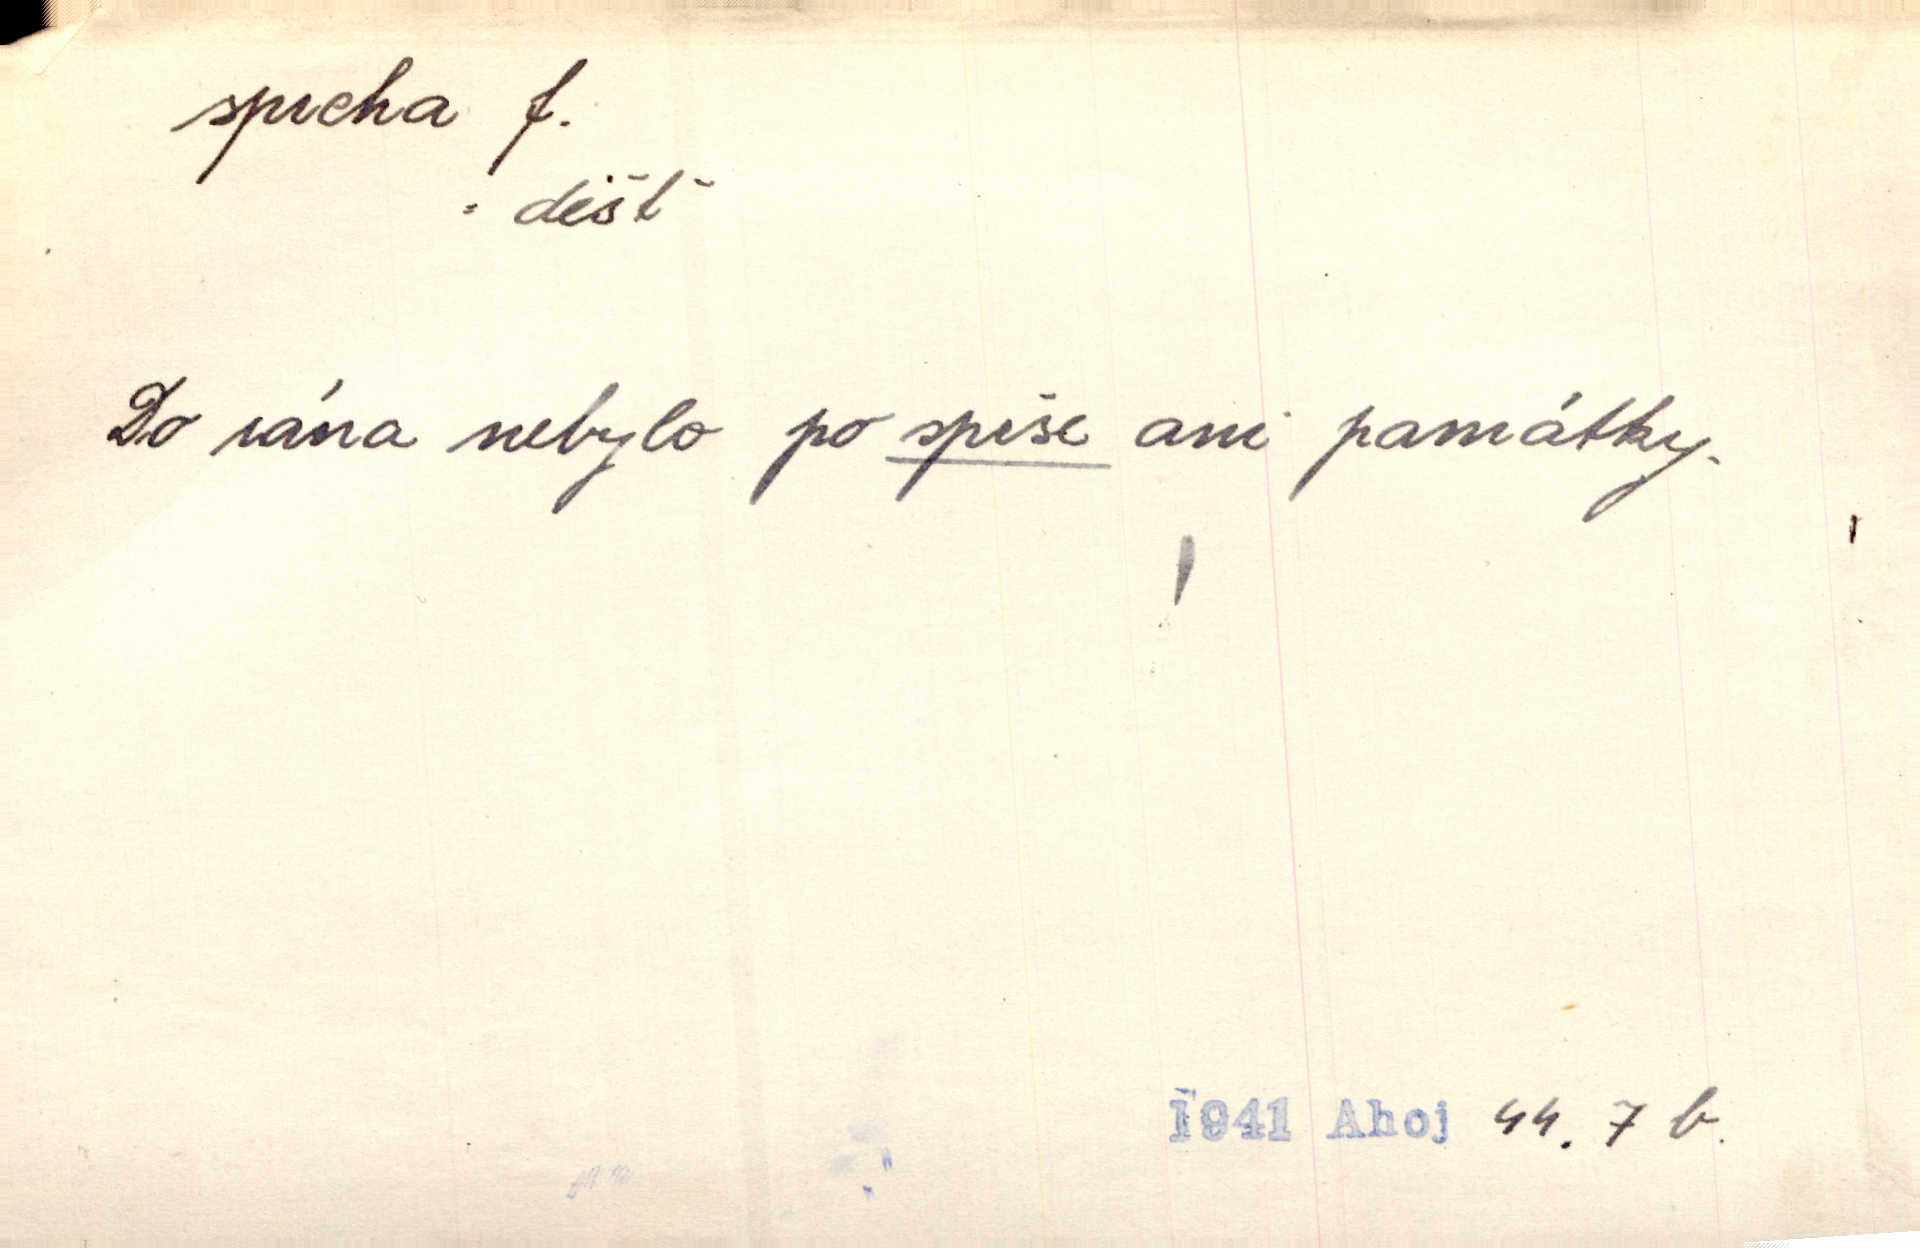 sprcha f.
= déšť
Do rána nebylo po sprše ani památky.
1941 Ahoj 44. 7 b.